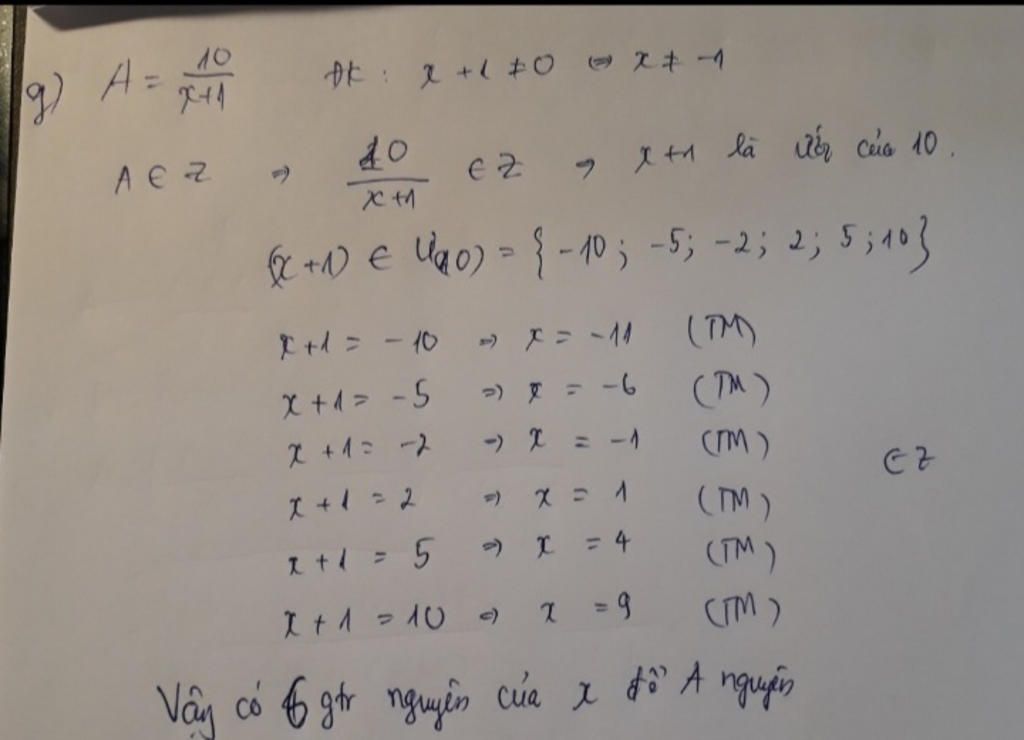 g) A = 10/(x+1) ĐK : x + 1 ≠ 0 ⇔ x ≠ -1
A ∈ Z ⇒ 10/(x+1) ∈ Z ⇒ x+1 là ước của 10.
(x+1) ∈ Ư(10) = { -10 ; -5; -2; 2; 5; 10 }
x+1 = -10 ⇒ x = -11 (TM)
x+1 = -5 ⇒ x = -6 (TM)
x+1 = -2 ⇒ x = -1 (TM)
∈ Z
x+1 = 2 ⇒ x = 1 (TM)
x+1 = 5 ⇒ x = 4 (TM)
x+1 = 10 ⇒ x = 9 (TM)
Vậy có 6 gtr nguyên của x để A nguyên